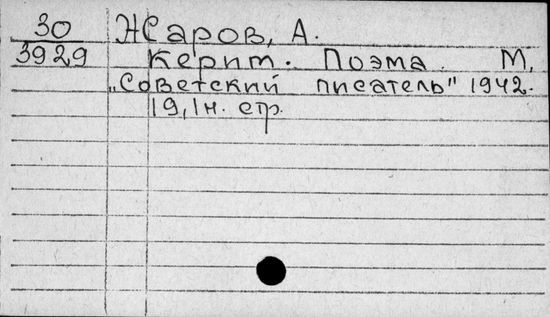 30 Жаров, А.
3929 Керим. Поэма. М,
„Советский писатель" 1942.
19, 1н. стр.